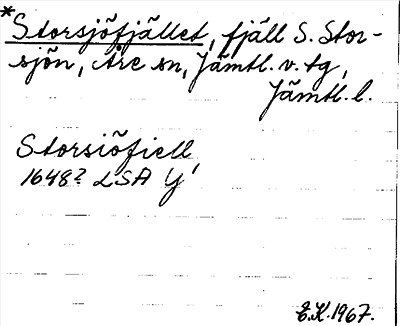 *Storsjöfjället, fjäll S. Stor-
sjön, Åre sn, Jämtl. v. tg,
Jämtl. l.
Storsiöfiell
1648? LSA Y'
E.K. 1967.